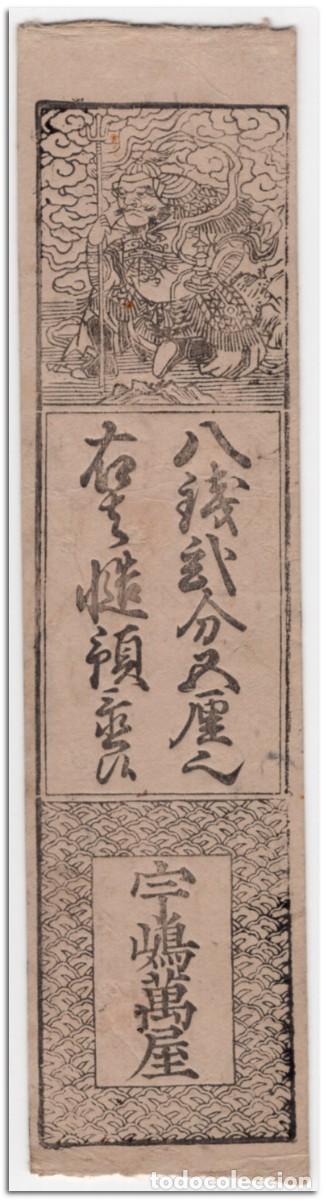 八銭弐分五厘也
右之慥預置候
宇嶋萬屋
todocoleccion